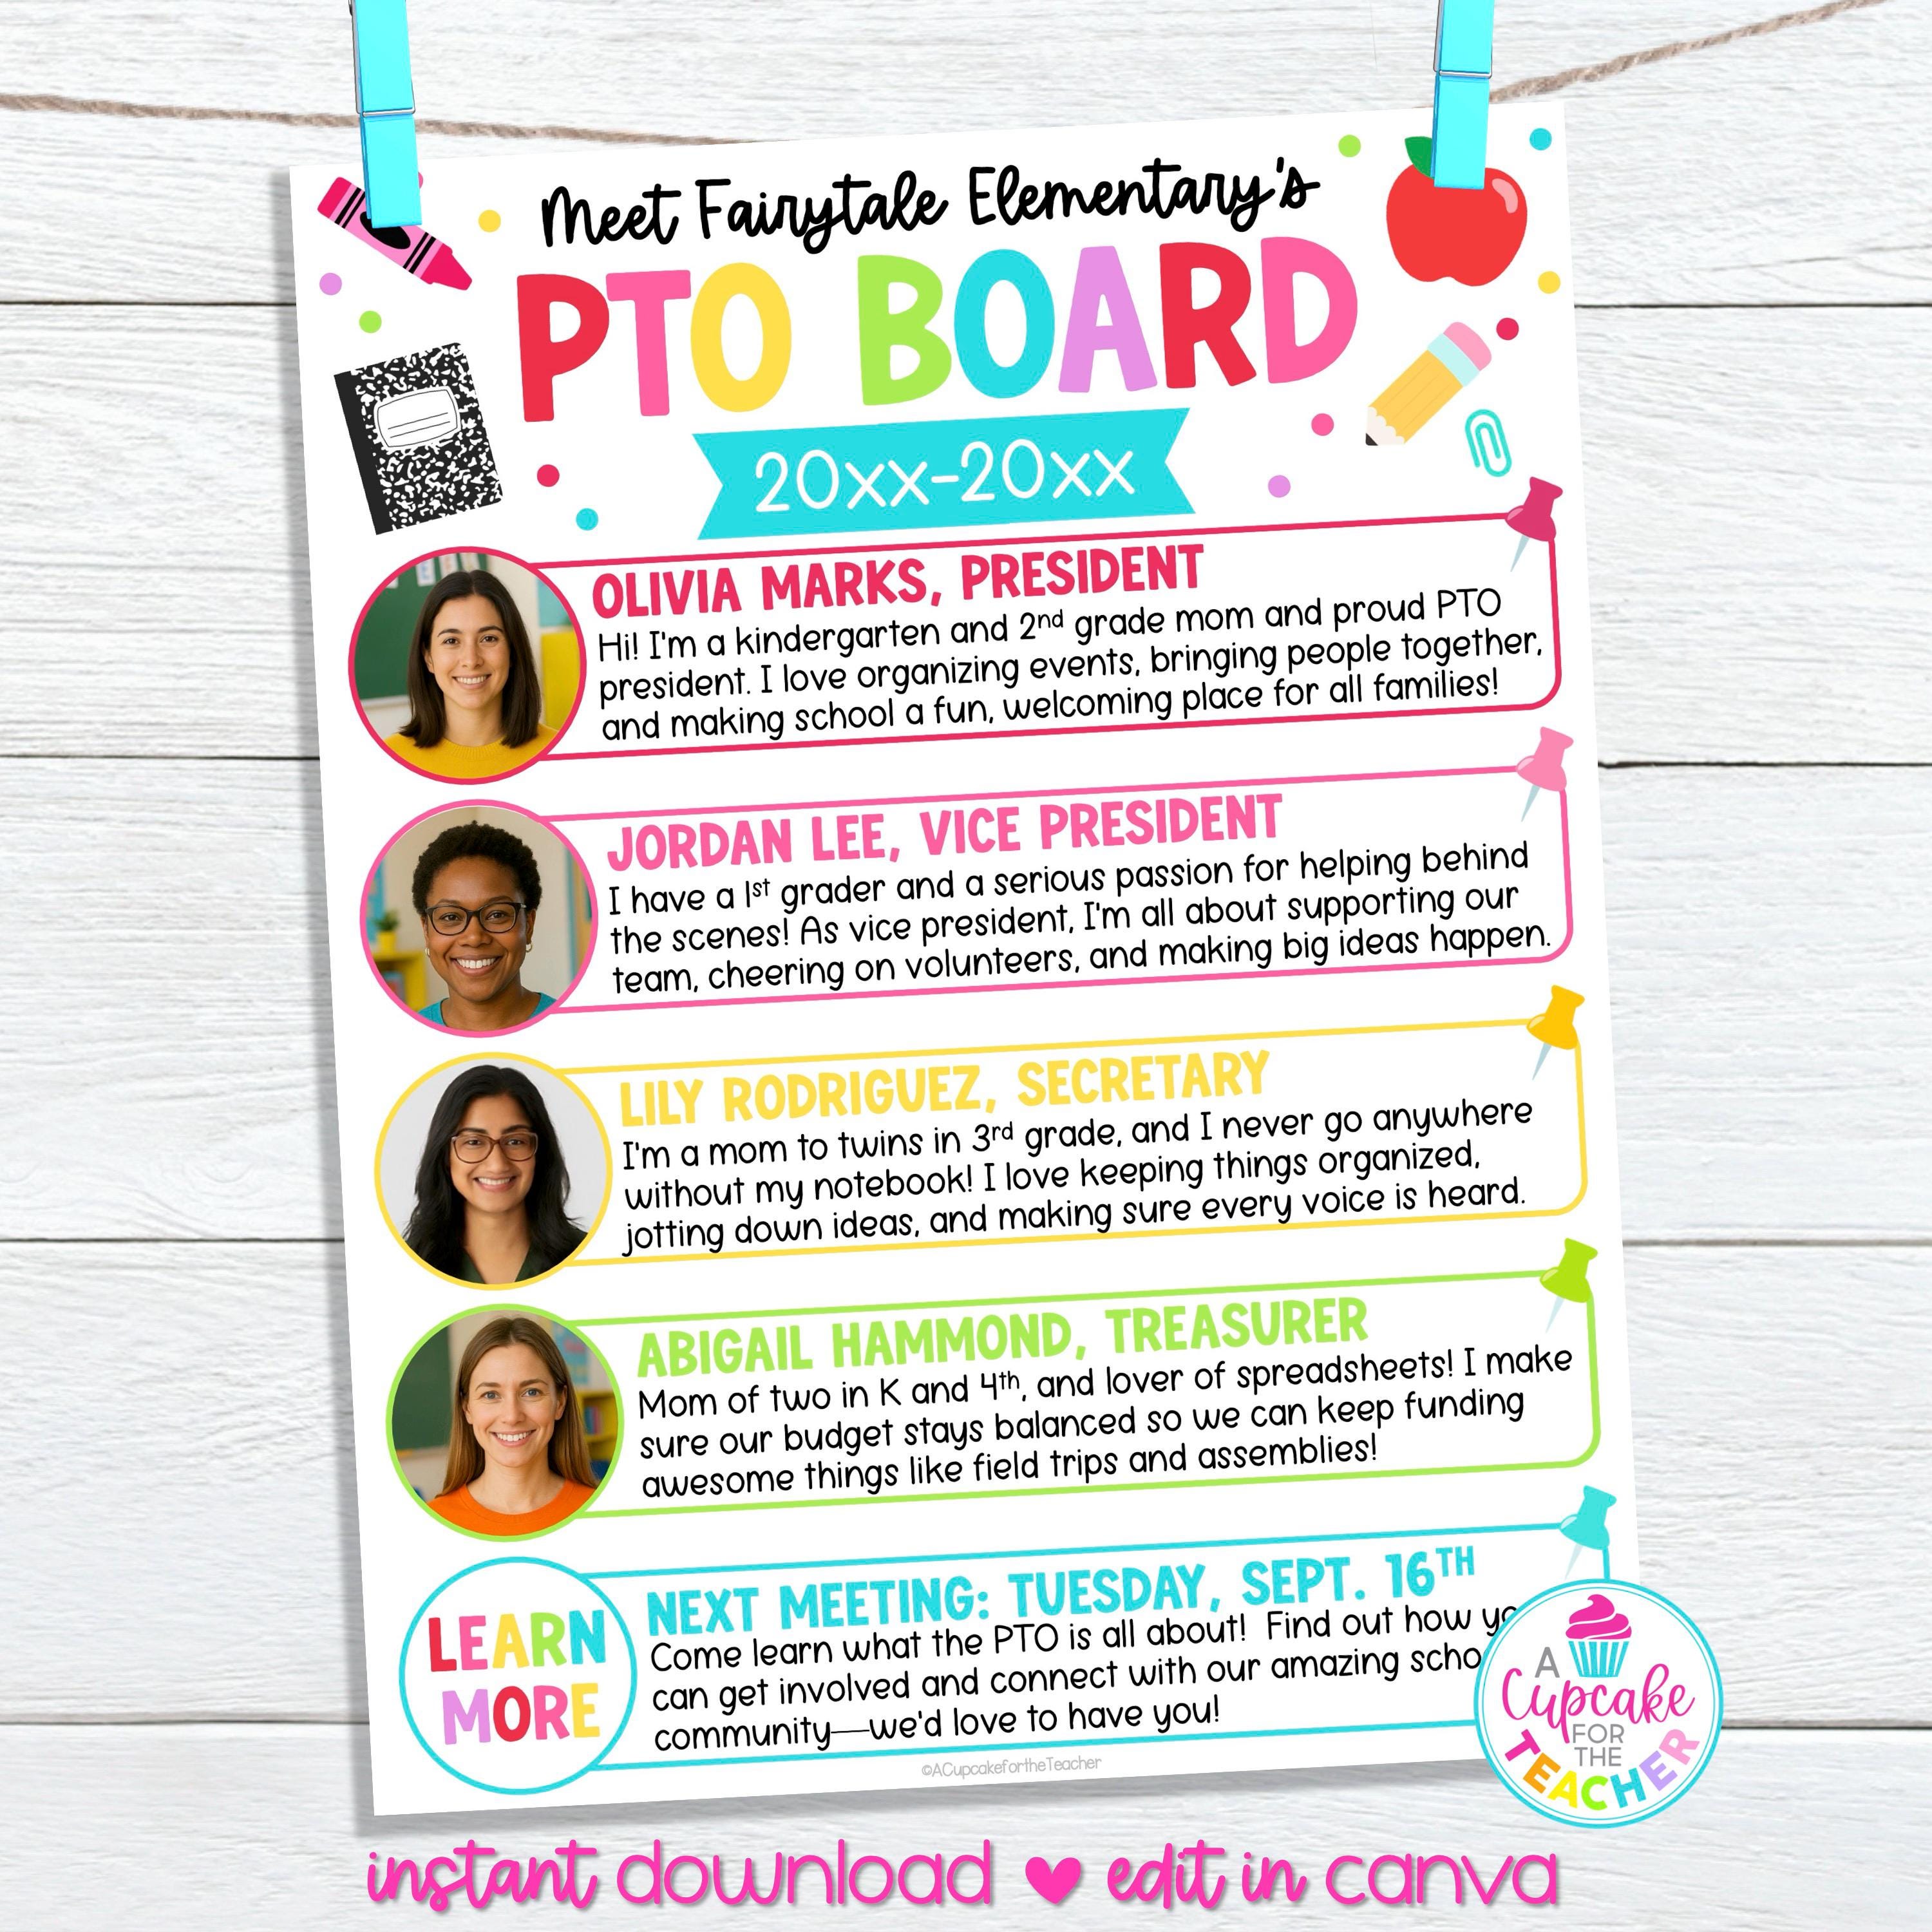 Meet Fairytale Elementary's
PTO BOARD
20xx-20xx
OLIVIA MARKS, PRESIDENT
Hi! I'm a kindergarten and 2nd grade mom and proud PTO
president. I love organizing events, bringing people together,
and making school a fun, welcoming place for all families!
JORDAN LEE, VICE PRESIDENT
I have a 1st grader and a serious passion for helping behind
the scenes! As vice president, I'm all about supporting our
team, cheering on volunteers, and making big ideas happen.
LILY RODRIGUEZ, SECRETARY
I'm a mom to twins in 3rd grade, and I never go anywhere
without my notebook! I love keeping things organized,
jotting down ideas, and making sure every voice is heard.
ABIGAIL HAMMOND, TREASURER
Mom of two in K and 4th, and lover of spreadsheets! I make
sure our budget stays balanced so we can keep funding
awesome things like field trips and assemblies!
LEARN
MORE
NEXT MEETING: TUESDAY, SEPT. 16TH
Come learn what the PTO is all about! Find out how
can get involved and connect with our amazing
community—we'd love to have you!
©ACupcakefortheTeacher
A
Cupcake
FOR
THE
TEACHER
instant download ♥ edit in canva